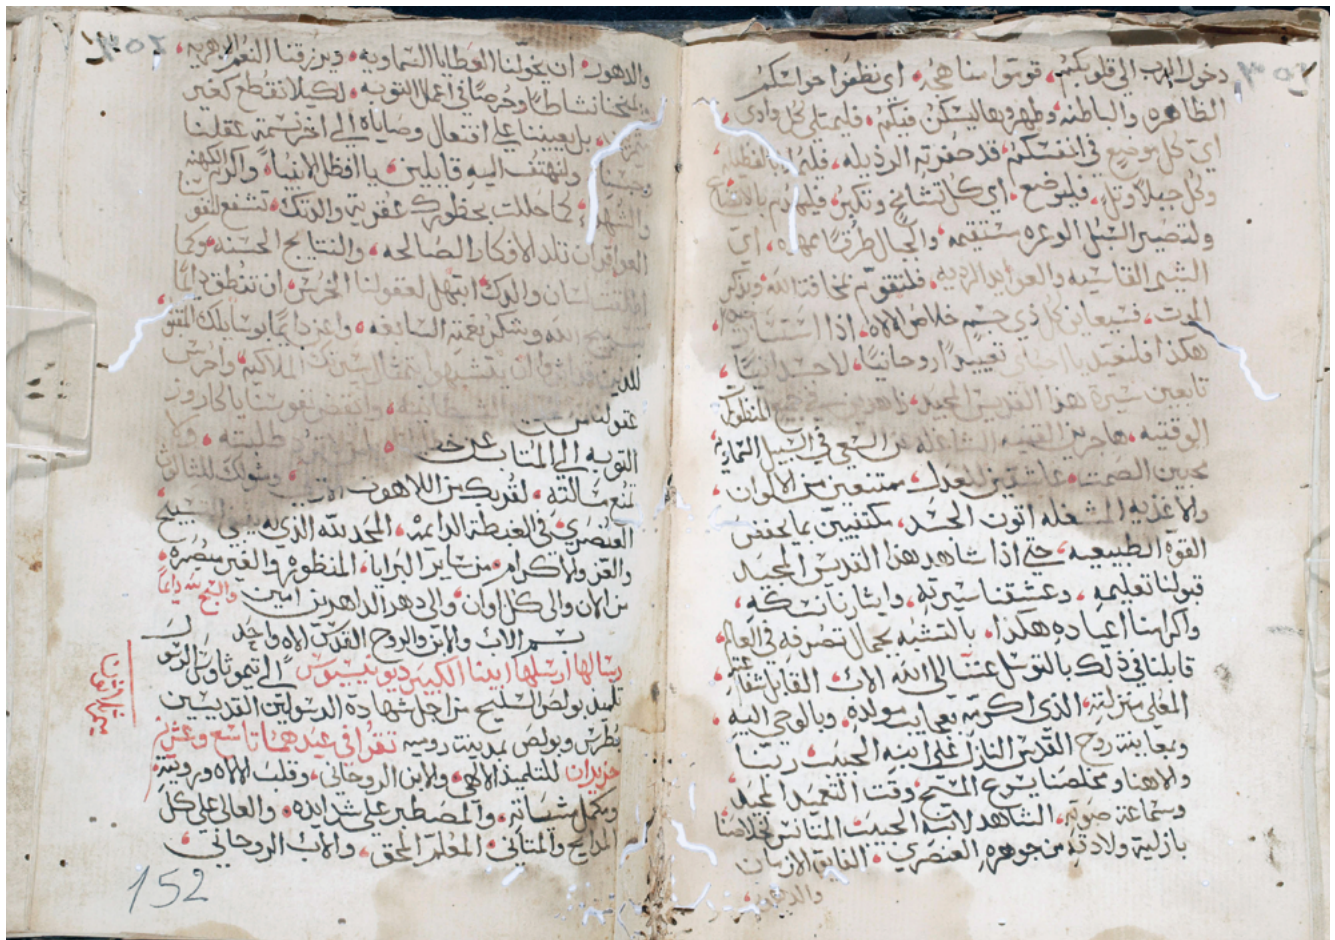 دخول الرب الي قلوبكم، قوموا مناهجه، اي نظفوا حواسكم
الظاهره والباطنه وطهروها ليسكن فيكم، فليمتلي كل وادي
اي كل موضع في انفسكم قد حفرته الرذيله، فليملا بالفضيله
وكل جبلاً وتل، فليوضع، اي كل تشامخ وتكبر، فليهدم بالاتضاع
ولتصير السبل الوعره مستقيمه، والجبال طرقاً سهله، اي
الشيم القاسيه والعوايد الرديه، فلتتقوم بمخافة الله وتذكر
الموت، فسيعاين كل ذي جسم خلاص الاله، اذا استنارت
هكذا فلنعيد يا احباي تعييداً روحانياً، لا جسدانياً
تابعين سيرة هذا القديس المجيد، زاهدين في جميع المنظورات
الوقتيه، هاجرين القنيه الشاغله عن السعي في السبيل السماويه
محبين الصمت، عاشقين للعدل، ممتنعين من الالوان
والاغذيه المشغله اتون الجسد، مكتفيين بما يحفظ
القوه الطبيعيه، حتي اذا شاهد هذا القديس المجيد
قبولنا تعليمه، وعشقنا سيرته، وايثارنا نسكه
واكرامنا اعياده هكذا، بالتشبه بجمال تصرفه في العالم
قابلنا في ذلك بالتوسل عنا الي الله الاب، القابل شفاعته
المعلي منزلته، الذي اكرمه بعجايب مولده، وبالوحي اليه
وبمعاينة روح القدس النازل علي ابنه الحبيب ربنا
والاهنا ومخلصنا يسوع المسيح، وقت التعميد المجيد
وسماعة صوته، الشاهد لابنه الحبيب المتانس لخلاصنا
بازلية ولادته من جوهره العنصري، الفايق الازمان
والدهور،
والدهور، ان يخولنا العطايا السماويه، ويرزقنا النعم الابديه
ويمنحنا نشاطاً وحرصاً في اعمال التوبه، لكيلا نقتطع كغير
بل يعيننا علي افتعال وصاياه الي اخر نسمة، عقلنا
ولنهتف اليه قايلين، يا افضل الانبيا، واكرم الكهنه
والشهدا، كما حللت بحظورك عقوبة والدتك، تشفع لنفو
العواقر ان تلد الافكار الصالحه، والنتايج الحسنه، وكما
لسان والدك، ابتهل لعقولنا الخرس، ان تنطق دايماً
بتسبيح الله وشكر نعمه السابغه، واعز دايماً بوسايلك المقبو
للدين ان يتشبهوا بتمثال سيرتك الملاكيه، واحرس
عقولنا من الشيطانيه، وايقض نفوسنا يا كاروز
التوبه الي المتاب طلبته، وكما
تمنع مسالته، لقربك من اللاهوت وسولك للثالوث
العنصري، في الغبطة الدايمه، المجد لله الذي له ينبغي التسبيح
والعز والاكرام، من ساير البرايا، المنظوره والغير مبصره،
من الان والي كل اوان، والي دهر الداهرين امين والسبح لله دايماً
بسم الاب والابن والروح القدس الاه واحد
رسالة ارسلها ابينا الكبير ديونيسيوس الي تيموثاوس الرسول
تلميذ بولص السليح من اجل شهادة الرسولين القديسين
بطرس وبولص بمدينة روميه تقرا في عيدهما تاسع وعشرين
حزيران للتلميذ الالهي، والابن الروحاني، وقلب الالاه ورويته
ومكمل مسراته، والمصطبر علي شدايده، والعالي علي كل
المدايح والمثاني، المعلم المحق، والاب الروحاني،
152